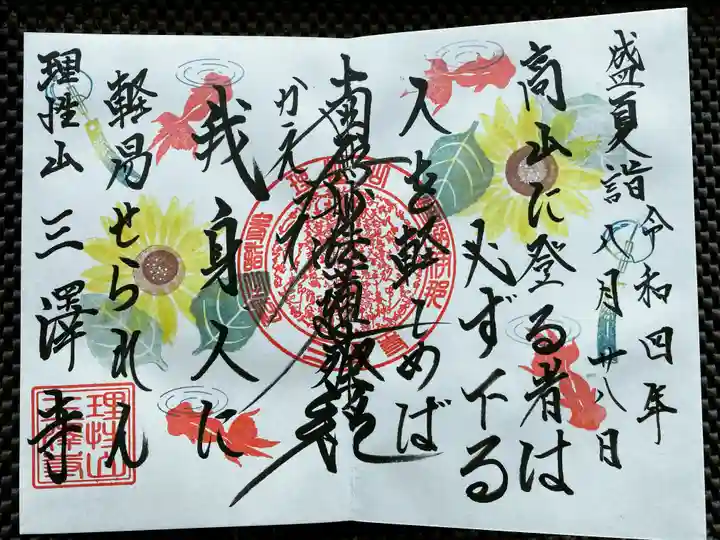 盛夏詣
令和四年
八月廿八日
高山に登る者は
必ず下る
人を軽しめば
南無妙法蓮華経
かえって
我身人に
軽易せられん
理性山 三澤寺
理性山
三澤寺